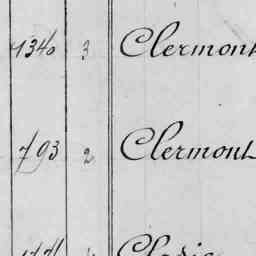 1340 3 Clermont
793 2 Clermont